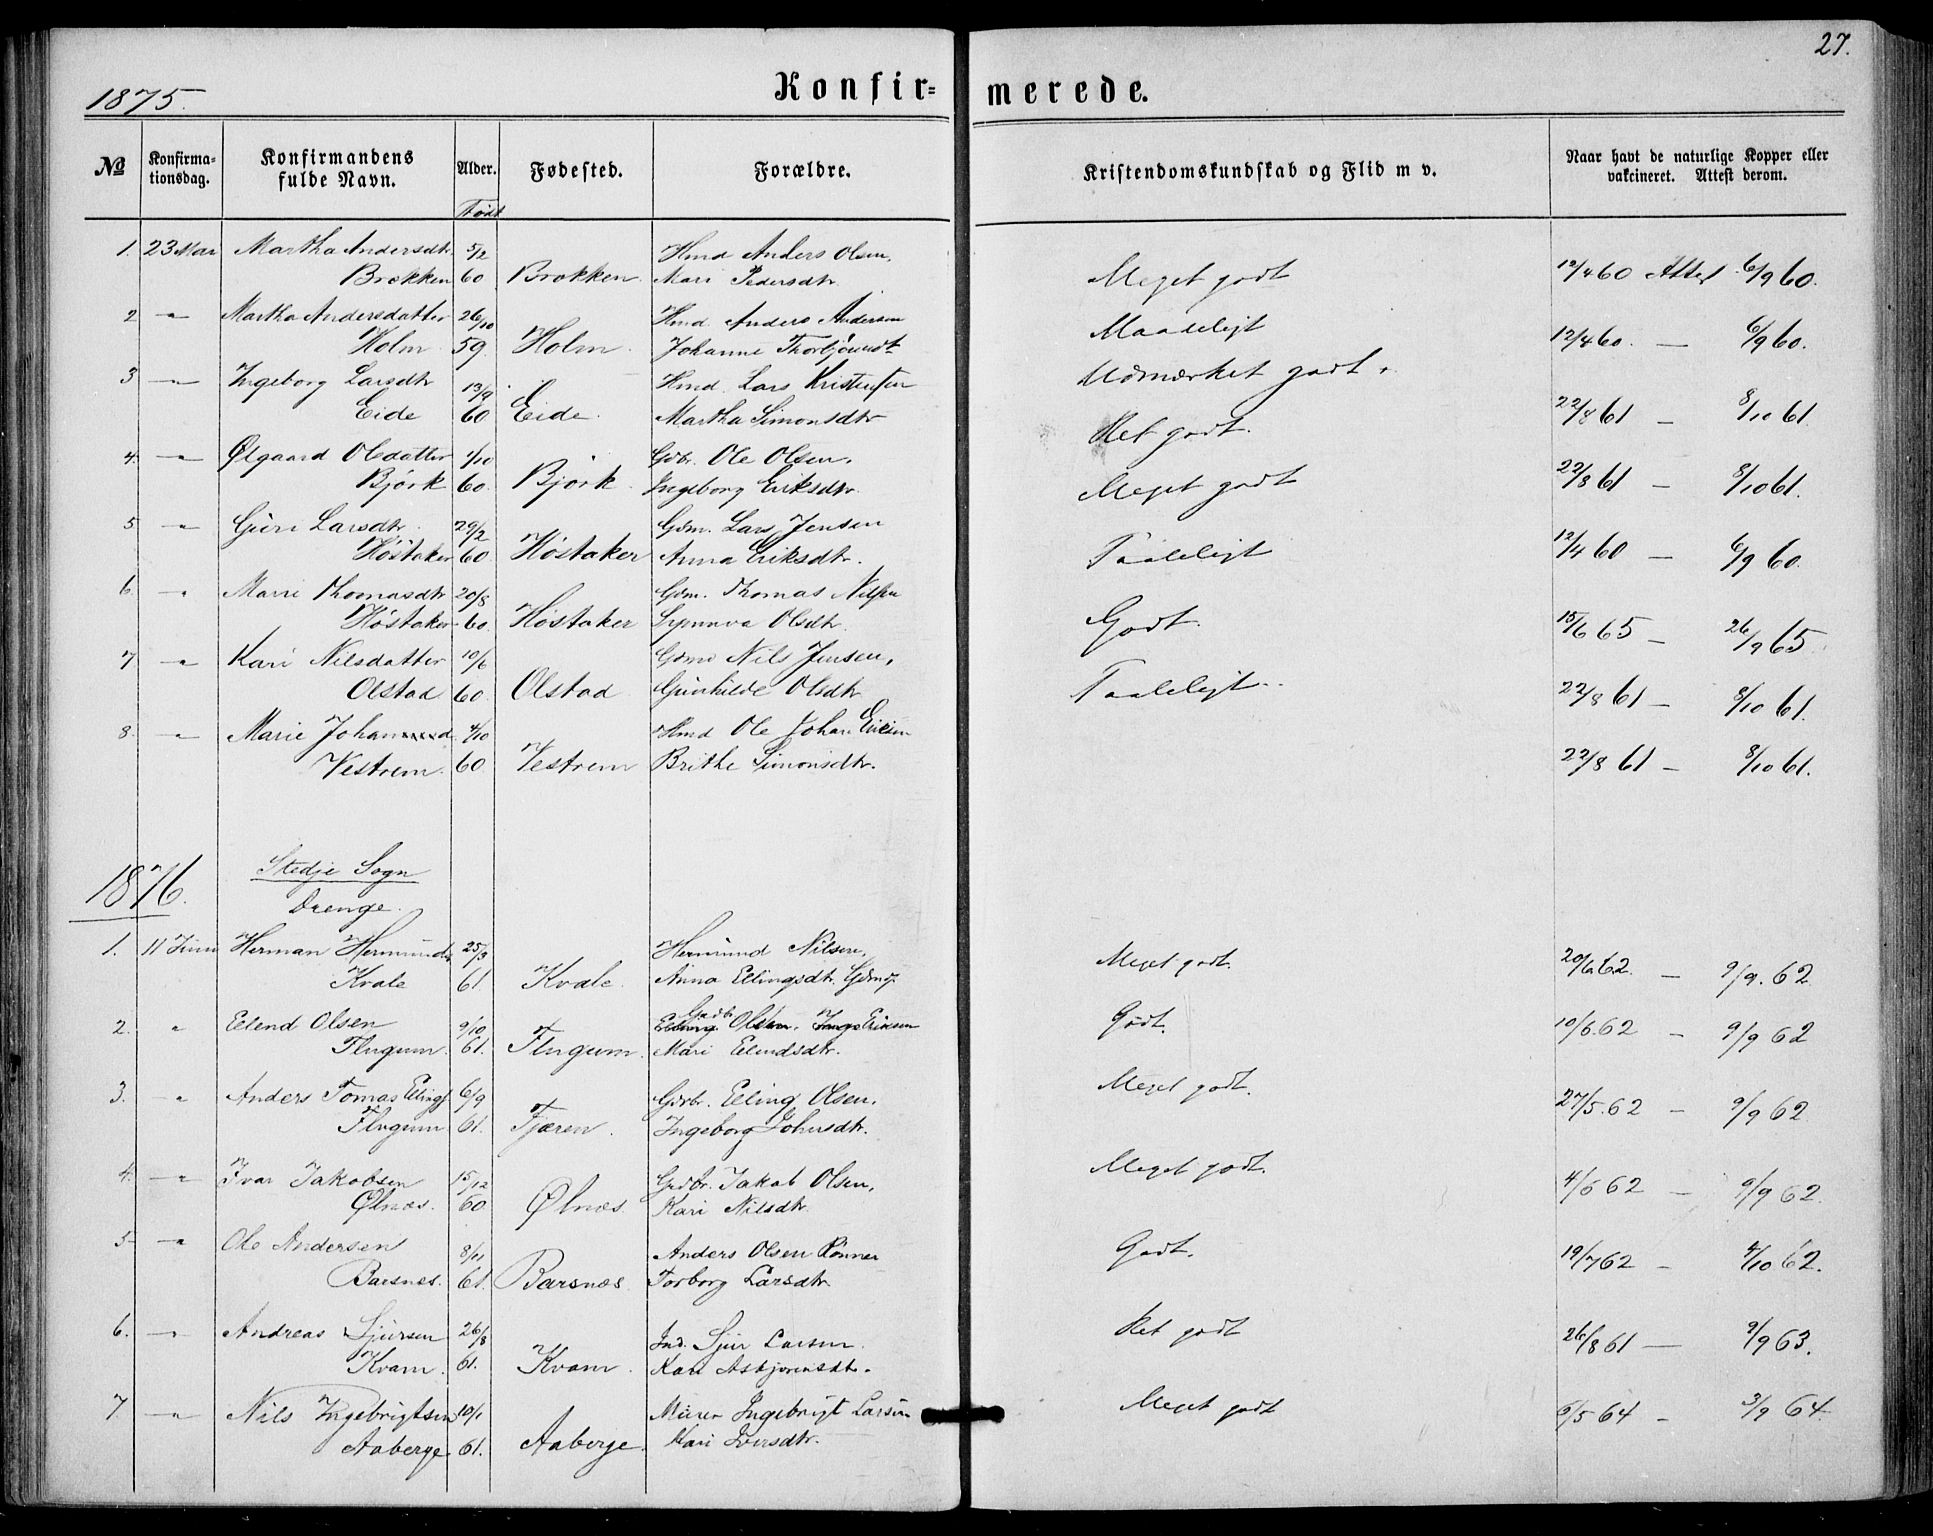 27.
1875. Konfirmerede.
№ Konfirmationsdag. Konfirmandens fulde Navn. Alder. Fødested. Forældre. Kristendomskundskab og Flid m v. Naar havt de naturlige Kopper eller vakcineret. Attest derom.
Født
1. 23 Mai Martha Andersdtr. 5/2 Hmd Anders Olsen,
Brekken 60 Brekken. Mari Pedersdtr. Meget godt 12/4 60 Attest 6/9 60.
2 " Martha Andersdatter 26/10 Hmd. Anders Andersen
Holm 59 Holm. Johanne Thorbjörnsdt Maadeligt 12/4 60. — 6/9 60.
3 " Ingeborg Larsdtr 13/9 Hmd. Lars Kristensen Udmærket godt.
Eide 60 Eide. Martha Simonsdtr 22/8 61 — 8/10 61.
4. " Ølgaard Olsdatter 1/10 Gdbr. Ole Olsen, Ret godt.
Bjørk 60. Bjørk. Ingeborg Eriksdtr. 22/8 61 — 8/10 61.
5 " Guri Larsdtr. 29/2 Gdm. Lars Jensen Meget godt
Høstaker 60 Høstaker Anna Eriksdtr. 12/4 60 — 6/9 60.
6. " Marie Thomasdtr 20/8 Gdm. Thomas Nilsen Taaleligt
Høstaker 60. Høstaker Synneva Olsdtr. 15/6 65 — 26/9 65.
7 " Kari Nilsdatter 10/6 Gdmd Nils Jensen, Godt.
Olstad 60. Olstad Gunhilde Olsdtr 22/8 61 — 8/10 61.
8. " Marie Johan 4/10 Hmd Ole Johan Eriksen Taaleligt.
Vestrem. 60 Vestrem Brithe Simonsdtr. 22/8 61 — 8/10 61.
1876. Stedje Sogn
Drenge.
1. 11 Juni Herman Hermunds 25/3 Hermund Nilsen,
Kvale 61 Kvale. Anna Ellingsdtr. Meget godt. 20/6 62. — 9/9. 62
2. " Erlend Olsen 9/10 Gdbr. Olsen,
Flugum. 61. Flugum. Mari Erlendsdtr. Godt. 10/6. 62 — 9/9 62
3. " Anders Tomas Ellings 6/9 Gdbr. Elling Olsen,
Flugum 61. Fjæren. Ingeborg Johnsdtr. Meget godt. 27/5. 62 — 9/9 62
4. " Ivar Jakobsen 15/12 Gdbr. Jakob Olsen,
Ølnæs. 60 Ølnæs Kari Nilsdtr. Meget godt. 4/6 62 — 9/9 62.
5 " Ole Andersen 8/11 Anders Olsen Rönnei
Barsnes. 61. Barsnæs Torborg Larsdtr. Godt. 19/7 62 — 4/10 62.
6. " Andreas Sjursen 26/8 Ind. Sjur Larsen
Kvam. 61. Kvam. Kari Asbjørensdt. Ret godt 26/8 61 — 9/9 63.
7. " Nils Ingebrigtsen 10/1 Murer Ingebrigt Larsen
Aaberge 61. Aaberge. Kari Iversdtr. Meget godt 6/5 64 — 3/9 64